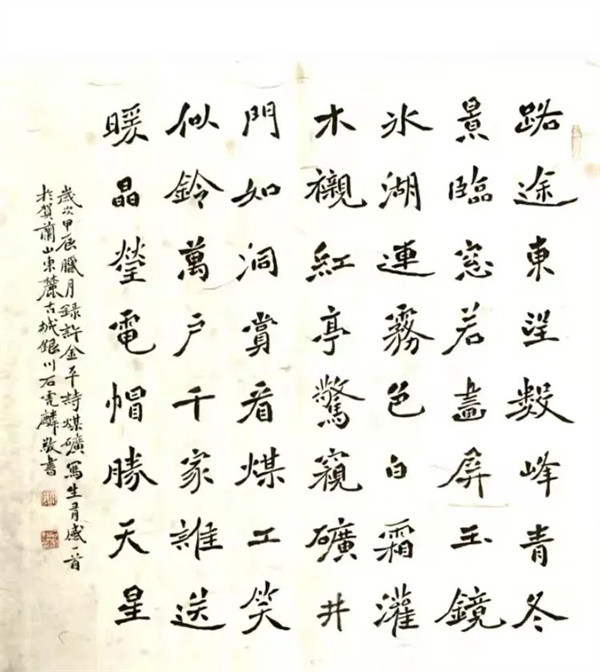 路途東望數峰青冬
景臨窓若畫屏玉鏡
冰湖連霧色白霜灌
木襯紅亭驚窺礦井
門如洞賞看煤工笑
似鈴萬戶千家誰送
暖晶瑩電帽勝天星
歲次甲辰臘月録許金平詩煤礦寫生有感一首
於賀蘭山東麓古城銀川石麟敬書